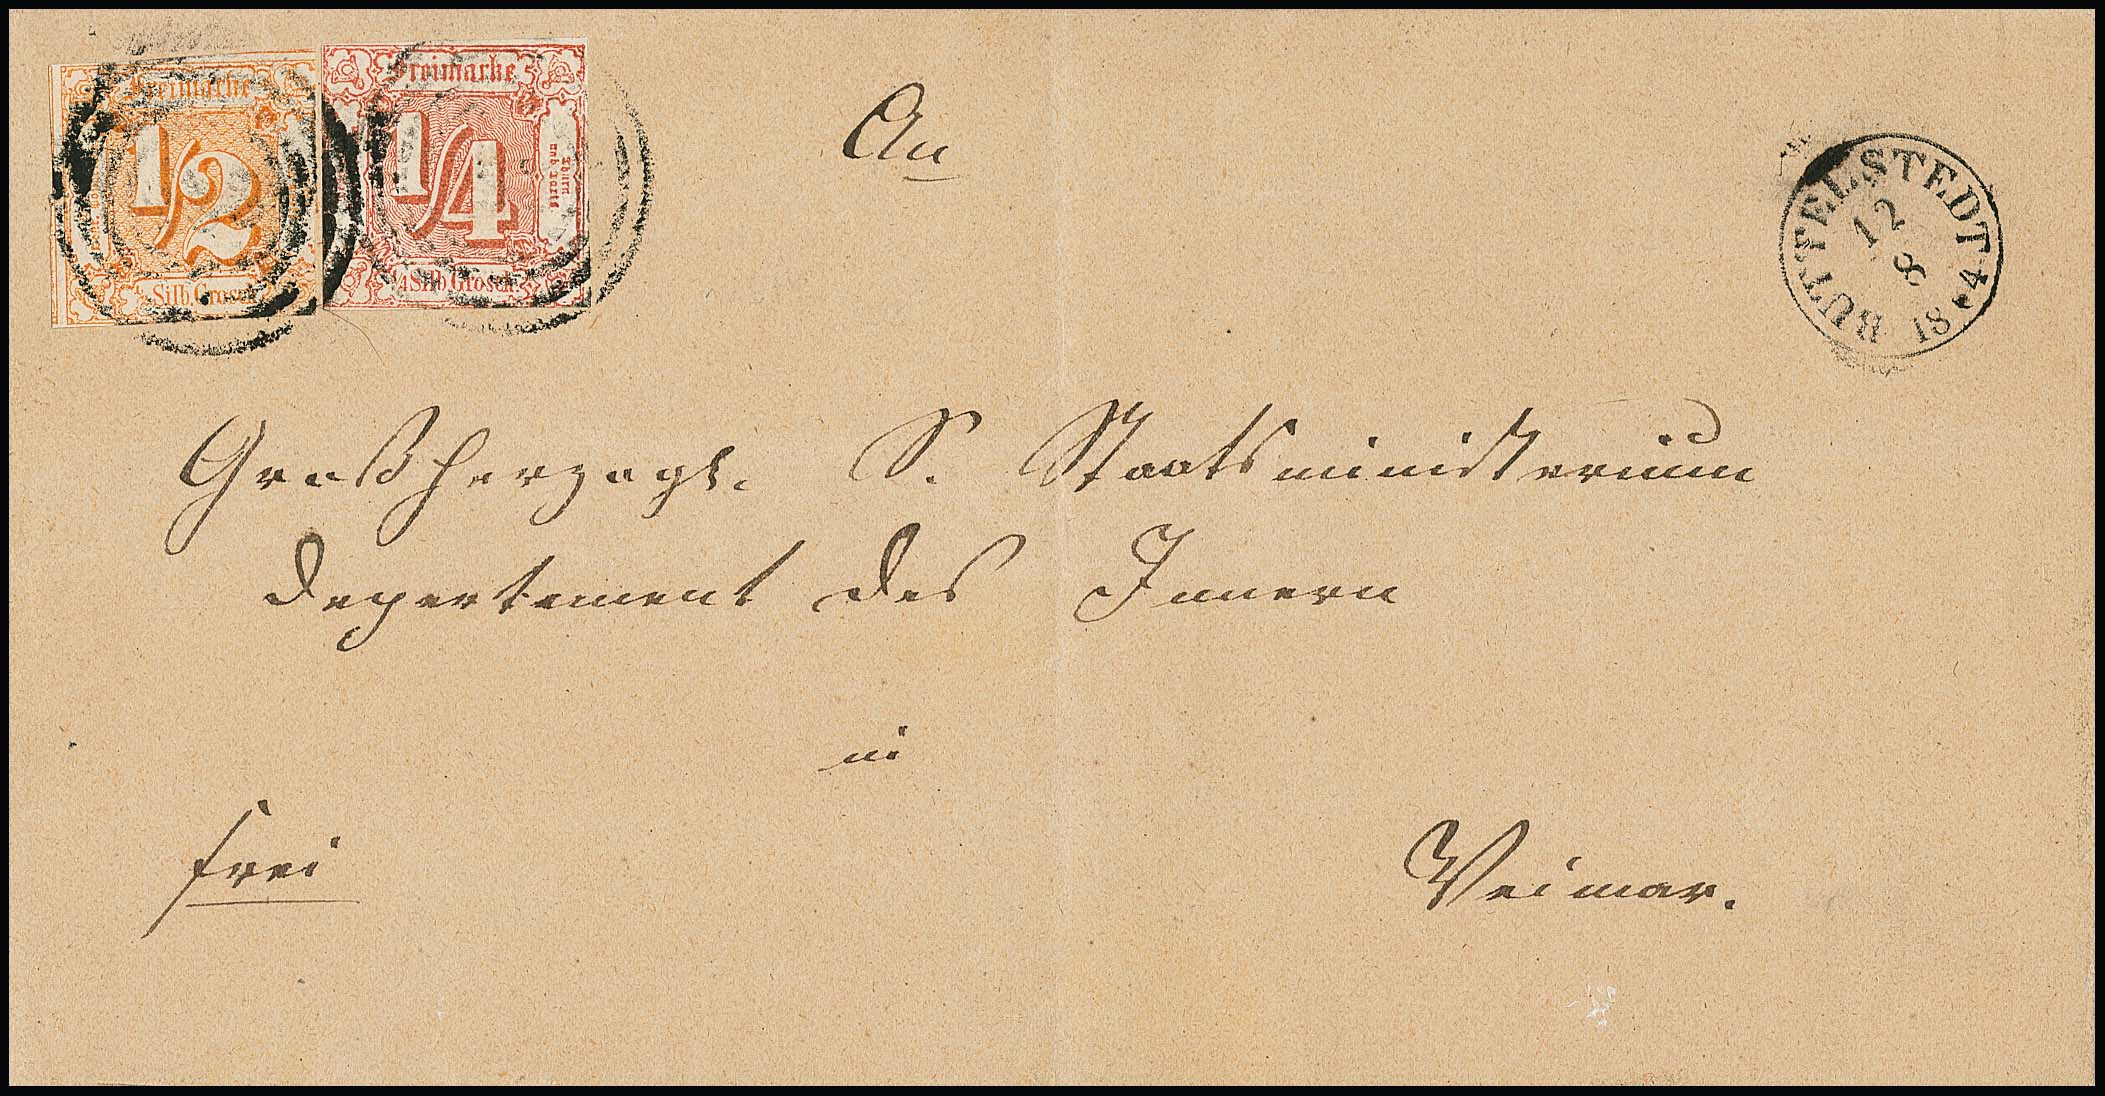 Freimarke
1/2
Silb. Grosch.
Freimarke
1/4
1/4 Silb Grosch.
An
BUTTELSTEDT
12
8
18 4
Großherzogl. S. Staatsministerium
Departement des Innern
in
frei
Weimar.